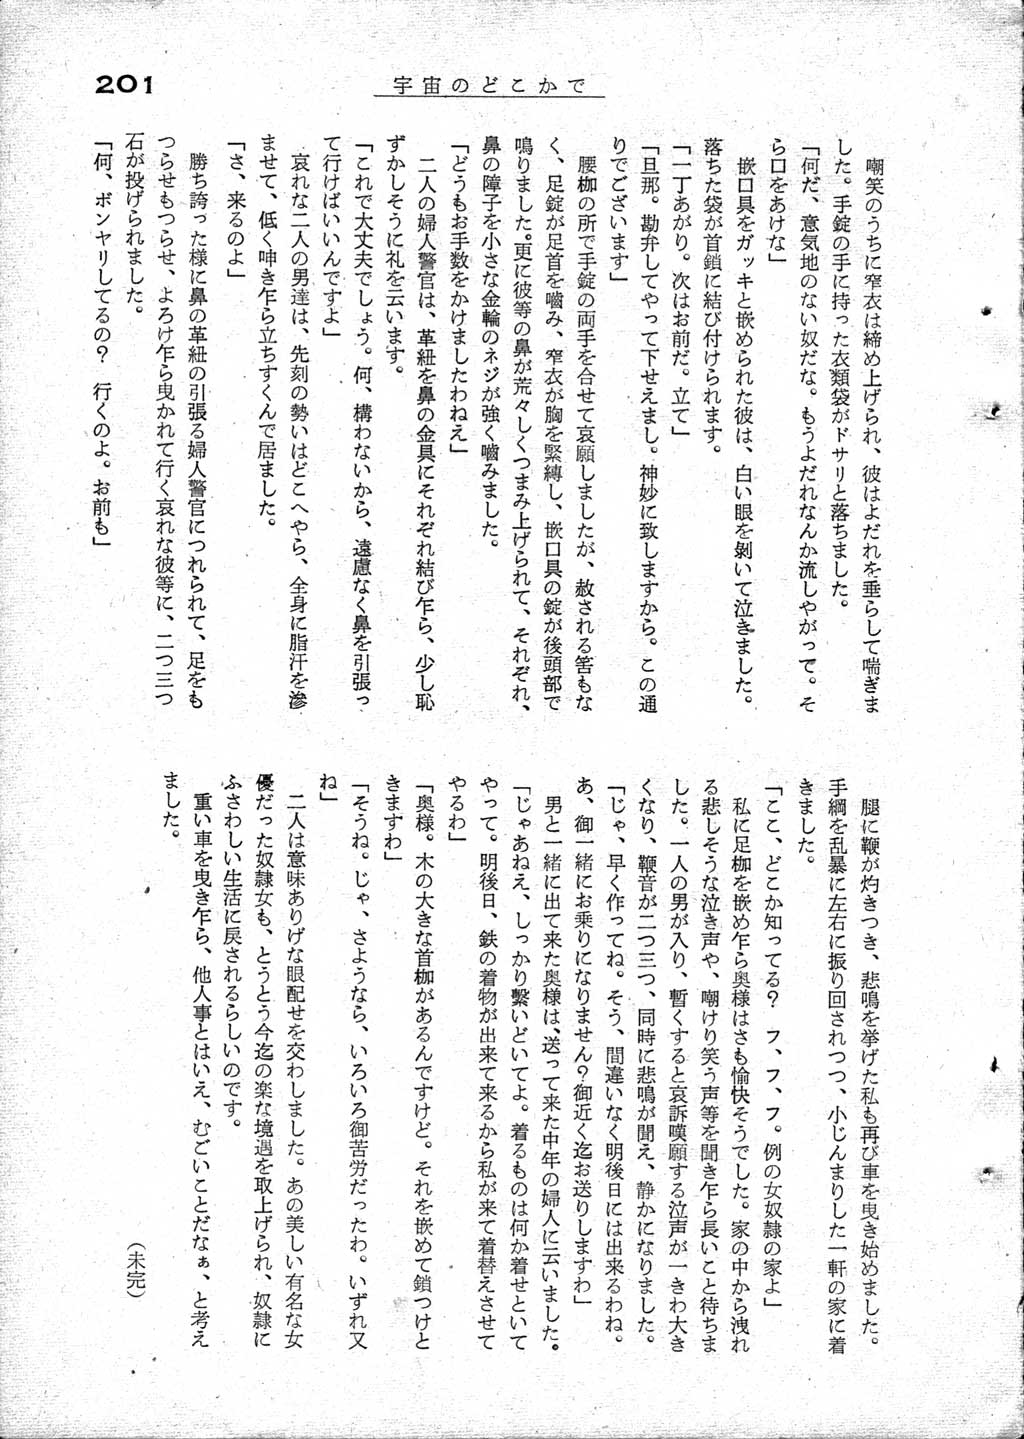 201
宇宙のどこかで
嘲笑のうちに窄衣は締め上げられ、彼はよだれを垂らして喘ぎま
した。手錠の手に持った衣類袋がドサリと落ちました。
「何だ、意気地のない奴だな。もうよだれなんか流しやがって。そ
ら口をあけな」
嵌口具をガッキと嵌められた彼は、白い眼を剝いて泣きました。
落ちた袋が首鎖に結び付けられます。
「一丁あがり。次はお前だ。立て」
「旦那。勘弁してやって下せえまし。神妙に致しますから。この通
りでございます」
腰枷の所で手錠の両手を合せて哀願しましたが、赦される筈もな
く、足錠が足首を嚙み、窄衣が胸を緊縛し、嵌口具の錠が後頭部で
鳴りました。更に彼等の鼻が荒々しくつまみ上げられて、それぞれ、
鼻の障子を小さな金輪のネジが強く嚙みました。
「どうもお手数をかけましたわねえ」
二人の婦人警官は、革紐を鼻の金具にそれぞれ結び乍ら、少し恥
ずかしそうに礼を云います。
「これで大丈夫でしょう。何、構わないから、遠慮なく鼻を引張っ
て行けばいいんですよ」
哀れな二人の男達は、先刻の勢いはどこへやら、全身に脂汗を滲
ませて、低く呻き乍ら立ちすくんで居ました。
「さ、来るのよ」
勝ち誇った様に鼻の革紐の引張る婦人警官につれられて、足をも
つらせもつらせ、よろけ乍ら曳かれて行く哀れな彼等に、二つ三つ
石が投げられました。
「何、ボンヤリしてるの？　行くのよ。お前も」
腿に鞭が灼きつき、悲鳴を挙げた私も再び車を曳き始めました。
手綱を乱暴に左右に振り回されつつ、小じんまりした一軒の家に着
きました。
「ここ、どこか知ってる？　フ、フ、フ。例の女奴隷の家よ」
私に足枷を嵌め乍ら奥様はさも愉快そうでした。家の中から洩れ
る悲しそうな泣き声や、嘲けり笑う声等を聞き乍ら長いこと待ちま
した。一人の男が入り、暫くすると哀訴嘆願する泣声が一きわ大き
くなり、鞭音が二つ三つ、同時に悲鳴が聞え、静かになりました。
「じゃ、早く作ってね。そう、間違いなく明後日には出来るわね。
あ、御一緒にお乗りになりません？御近く迄お送りしますわ」
男と一緒に出て来た奥様は、送って来た中年の婦人に云いました。
「じゃあねえ、しっかり繋いどいてよ。着るものは何か着せといて
やって。明後日、鉄の着物が出来て来るから私が来て着替えさせて
やるわ」
「奥様。木の大きな首枷があるんですけど。それを嵌めて鎖つけと
きますわ」
「そうね。じゃ、さようなら、いろいろ御苦労だったわ。いずれ又
ね」
二人は意味ありげな眼配せを交わしました。あの美しい有名な女
優だった奴隷女も、とうとう今迄の楽な境遇を取上げられ、奴隷に
ふさわしい生活に戻されるらしいのです。
重い車を曳き乍ら、他人事とはいえ、むごいことだなぁ、と考え
ました。
（未完）